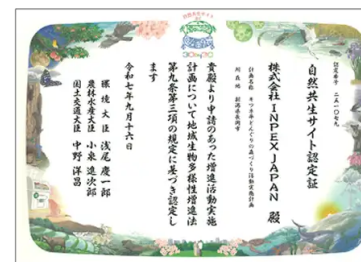 自然共生サイト認定証
株式会社INPEX JAPAN 殿
計画名称
所在地 新潟県長岡市
貴殿より申請のあった増進活動実施
計画について地域生物多様性増進法
第九条第三項の規定に基づき認定し
ます
令和七年九月十六日
環境大臣 浅尾 慶一郎
農林水産大臣 小泉 進次郎
国土交通大臣 中野 洋昌